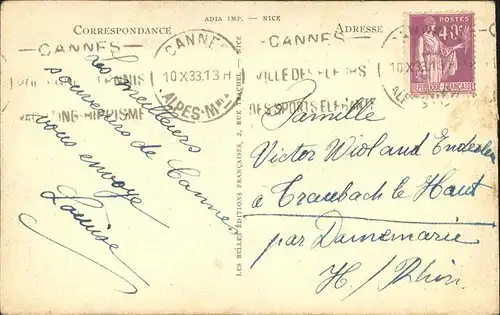 ADIA IMP. — NICE
CORRESPONDANCE
ADRESSE
—CANNES—
CANNES
10 X 33.13 H
ALPES-Mmes
—CANNES—
VILLE DES FLEURS
DES SPORTS ELEGANTS
HIPPISME
POSTES
40c
REPUBLIQUE FRANÇAISE
Les meilleurs
souvenirs de Cannes
vous envoye
Louise
LES BELLES ÉDITIONS FRANÇAISES, 2, RUE TRACHEL - NICE
Famille
Victor Wioland Enderlen
à Traubach le Haut
par Dannemarie
H/ Rhin